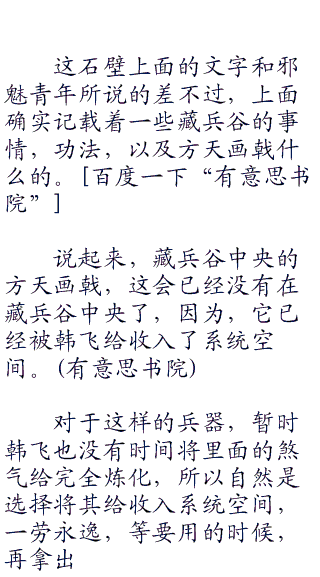 这石壁上面的文字和邪
魅青年所说的差不过，上面
确实记载着一些藏兵谷的事
情，功法，以及方天画戟什
么的。[百度一下“有意思书
院”]
说起来，藏兵谷中央的
方天画戟，这会已经没有在
藏兵谷中央了，因为，它已
经被韩飞给收入了系统空
间。(有意思书院)
对于这样的兵器，暂时
韩飞也没有时间将里面的煞
气给完全炼化，所以自然是
选择将其给收入系统空间，
一劳永逸，等要用的时候，
再拿出